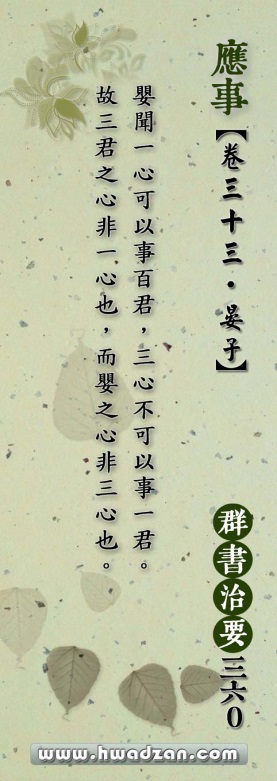 應事【卷三十三．晏子】
嬰聞一心可以事百君，三心不可以事一君。
故三君之心非一心也，而嬰之心非三心也。
群書治要三六0
www.hwadzan.com